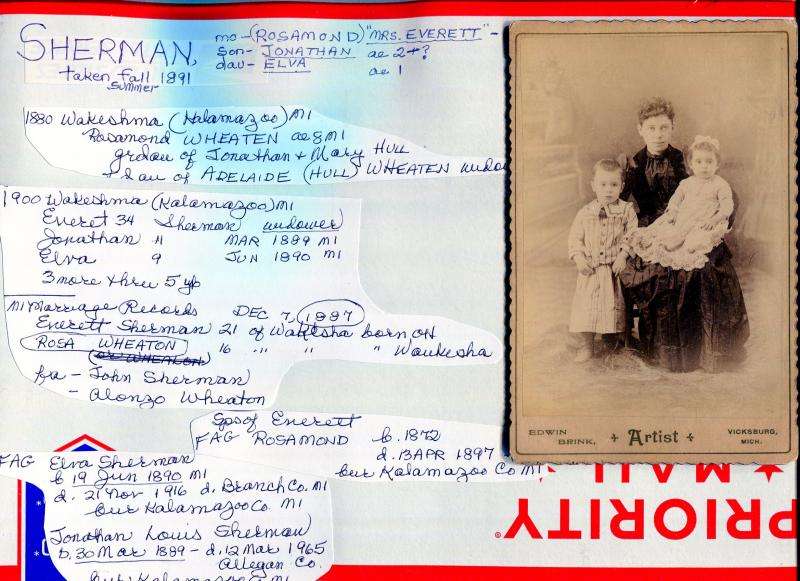 SHERMAN,
taken fall 1891
summer
mo-(ROSAMOND) "MRS. EVERETT"-
son- JONATHAN ae 2+?
dau- ELVA ae 1
1880 Wakeshma (Kalamazoo) MI
Rosamond WHEATEN ae 8 MI
grdau of Jonathan + Mary HULL
+ dau of ADELAIDE (HULL) WHEATEN widow
1900 Wakeshma (Kalamazoo) MI
Everet 34 Sherman widower
Jonathan 11 MAR 1889 MI
Elva 9 JUN 1890 MI
3 more thru 5 yo
MI Marriage Records DEC 7, 1887
Everett Sherman 21 of Wakesha born OH
ROSA WHEATON 16 " " " Waukesha
or WHEALON
fa - John Sherman
- Alonzo Wheaton
Sps of Everett
FAG ROSAMOND b. 1872
d. 13 APR 1897
bur Kalamazoo Co MI
FAG Elva Sherman
b 19 Jun 1890 MI
d. 21 Nov 1916 d. Branch Co. MI
bur Kalamazoo Co. MI
Jonathan Louis Sherman
b. 30 Mar 1889 - d. 12 Mar 1965
Allegan Co.
bur Kalamazoo Co MI
EDWIN BRINK, Artist VICKSBURG, MICH.
PRIORITY
★ MAIL ★